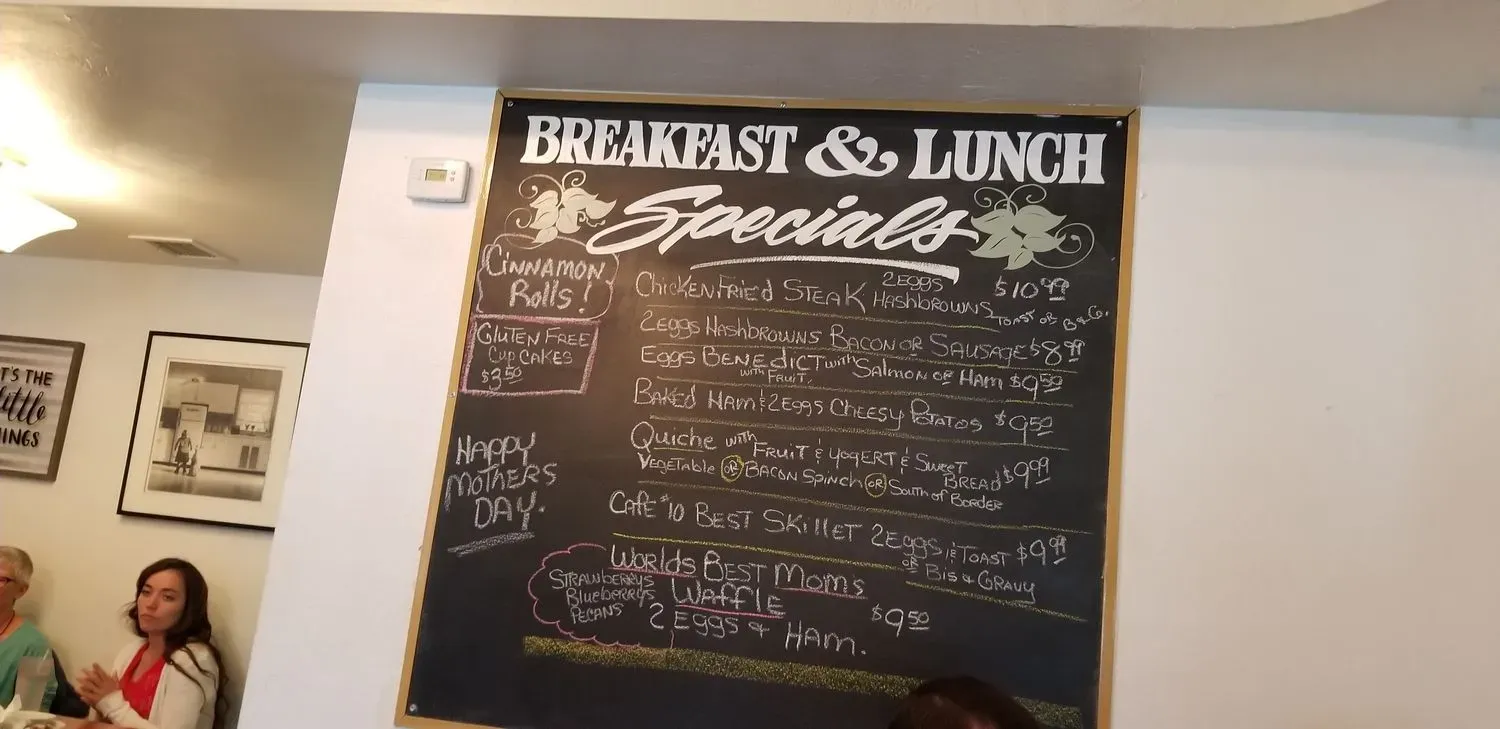 BREAKFAST & LUNCH
Specials
CINNAMON
Rolls!
GLUTEN FREE
CUPCAKES
$3.50
HAPPY
MOTHERS
DAY.
CHICKEN FRIED STEAK 2 EGGS HASHBROWNS $10.99
TOAST OR B & G.
2 EGGS HASHBROWNS BACON OR SAUSAGE $8.99
EGGS BENEDICT with SALMON OR HAM $9.50
WITH FRUIT,
BAKED HAM & 2 EGGS CHEESY POTATOS $9.50
Quiche with FRUIT & YOGERT & SWEET BREAD $9.99
VEGETABLE OR BACON SPINCH OR SOUTH OF BORDER
CAFE #10 BEST SKILLET 2 EGGS & TOAST $9.99
OR BIS & GRAVY
WORLDS BEST MOMS
WAFFLE
STRAWBERRYS
BLUEBERRYS
PECANS
2 EGGS & HAM.
$9.50
T'S THE
little
INGS